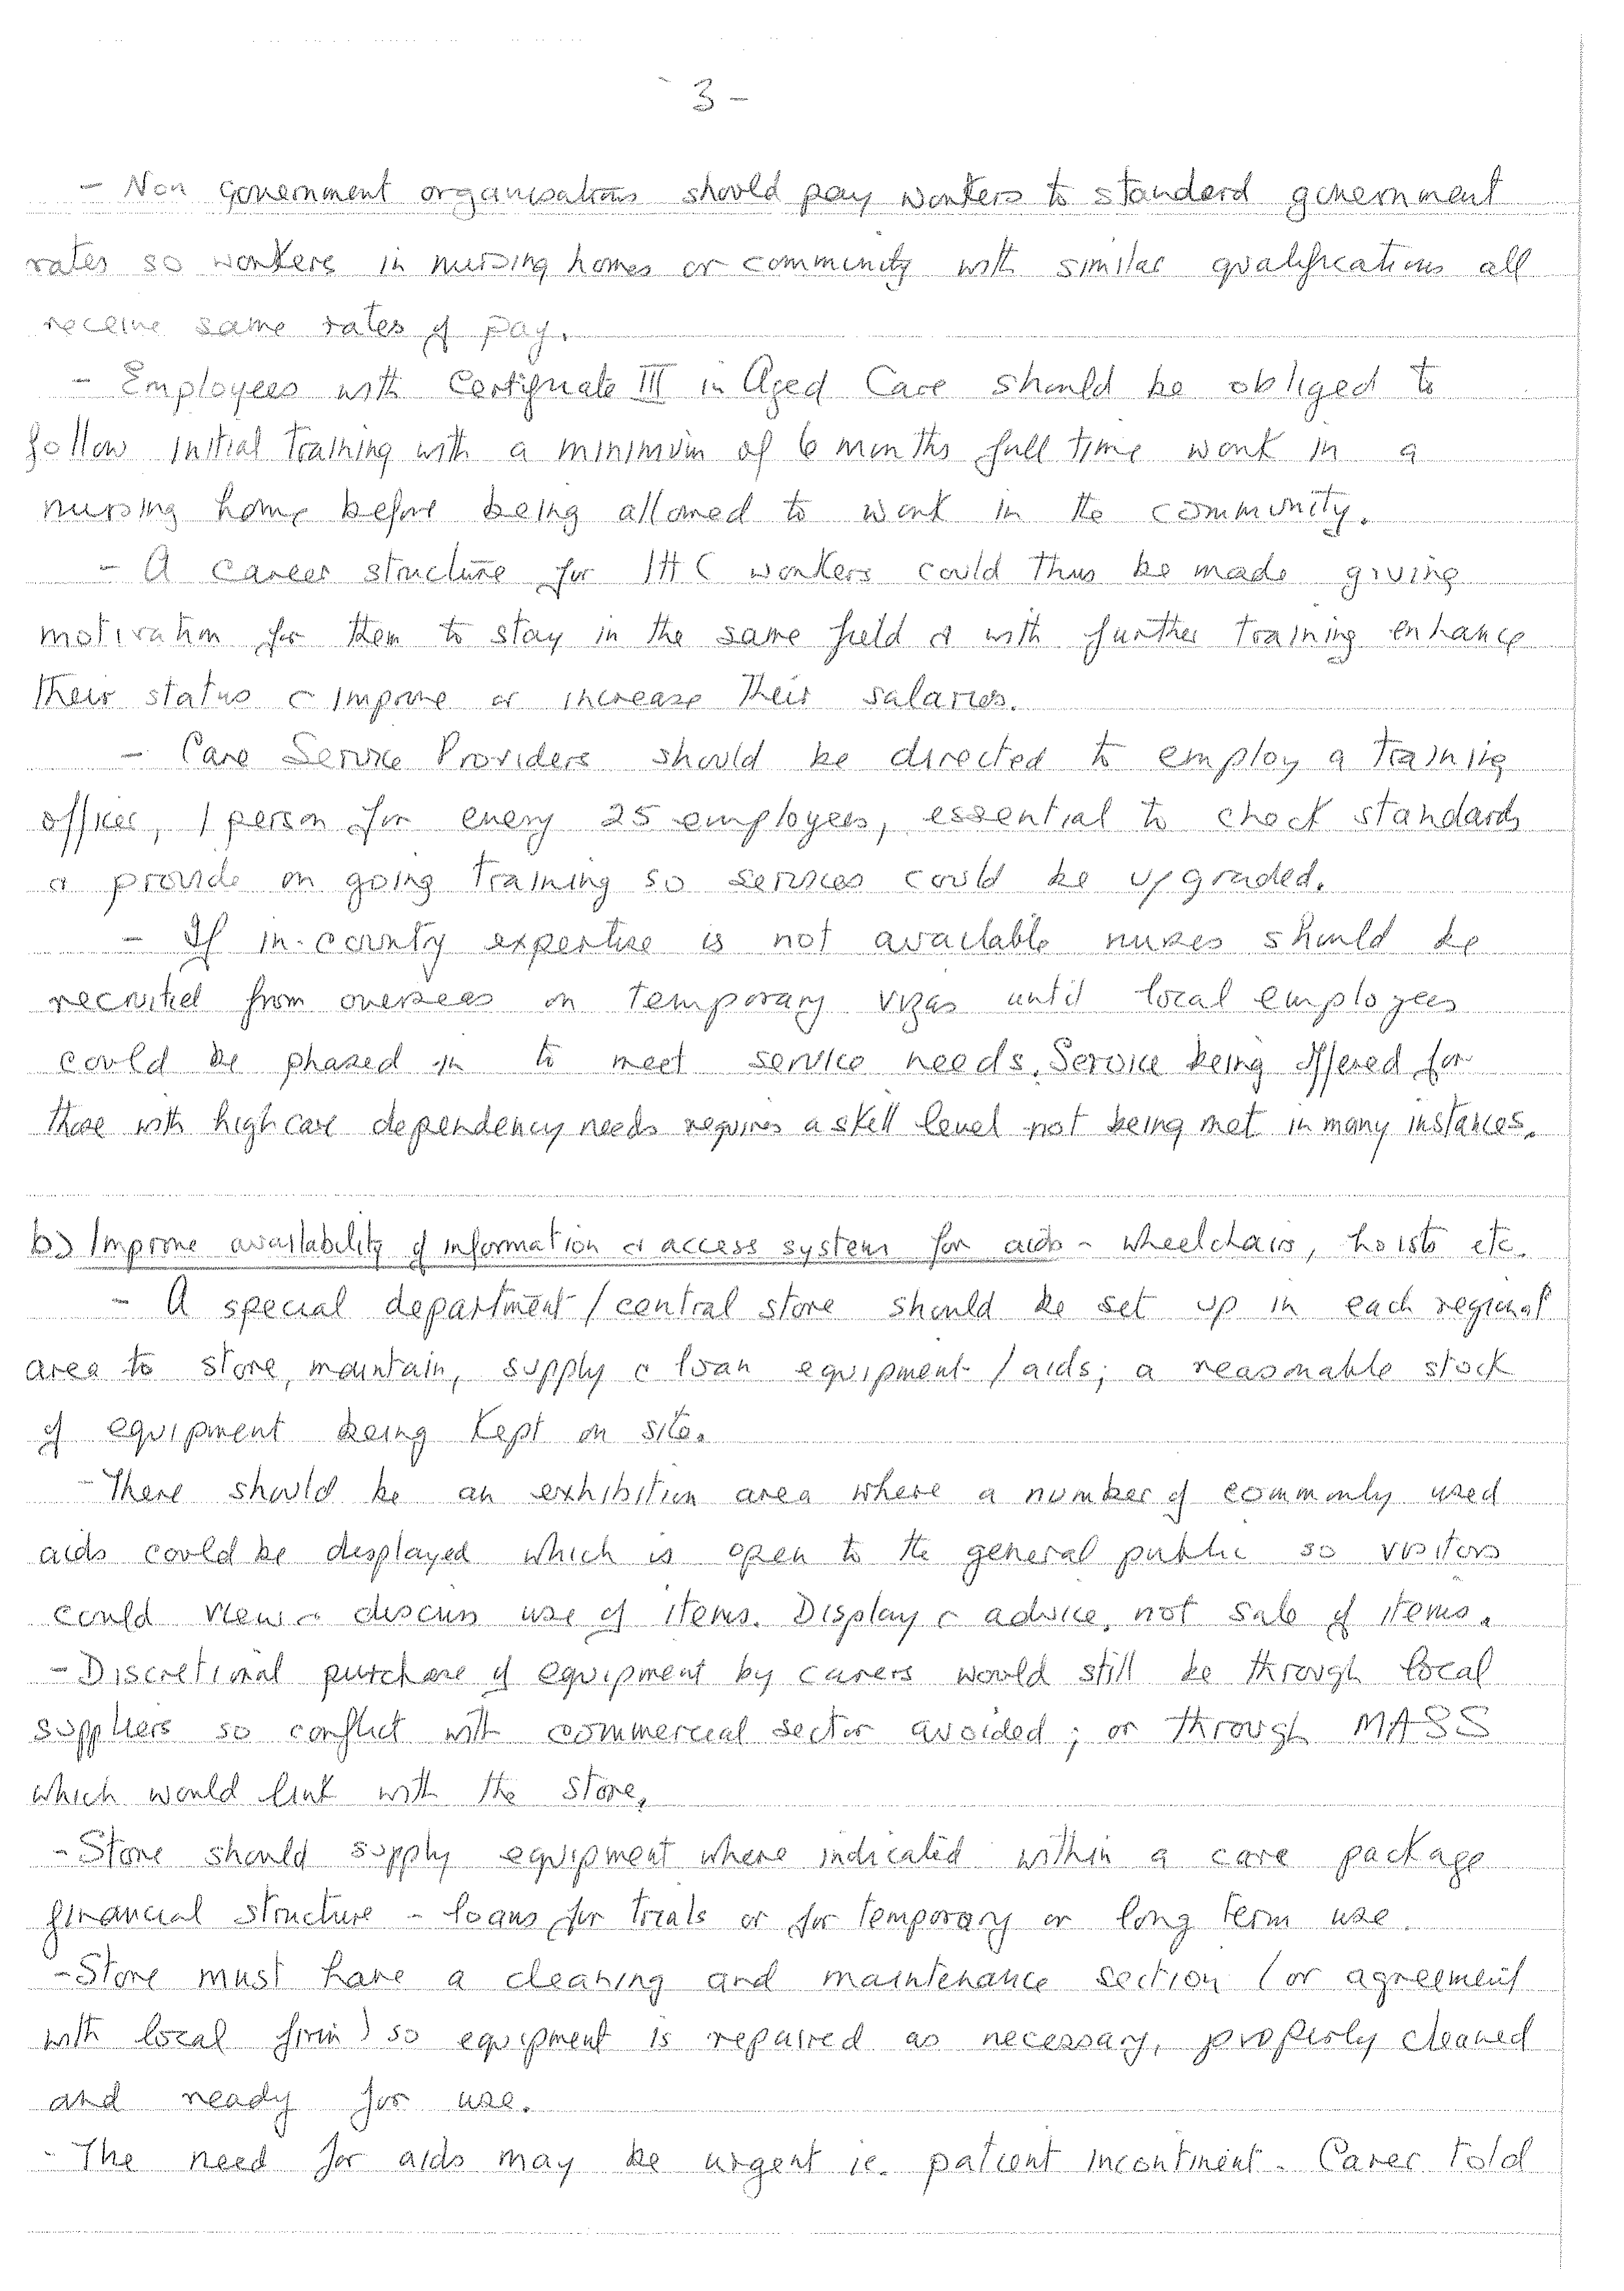 3 -
- Non Government organisations should pay workers to standard government
rates so workers in nursing homes or community with similar qualifications all
receive same rates of pay.
- Employees with Certificate III in Aged Care should be obliged to
follow initial training with a minimum of 6 months full time work in a
nursing home before being allowed to work in the community.
- A career structure for IHC workers could thus be made giving
motivation for them to stay in the same field & with further training enhance
their status & improve or increase their salaries.
- Care Service Providers should be directed to employ a training
officer, 1 person for every 25 employees, essential to check standards
& provide on going training so services could be upgraded.
- If in-country expertise is not available nurses should be
recruited from overseas on temporary vizas until local employees
could be phased in to meet service needs. Service being offered for
those with high care dependency needs requires a skill level not being met in many instances.
b) Improve availability of information & access systems for aids - wheelchairs, hoists etc.
- A special department / central store should be set up in each regional
area to store, maintain, supply & loan equipment / aids; a reasonable stock
of equipment being kept on site.
- There should be an exhibition area where a number of commonly used
aids could be displayed which is open to the general public so visitors
could view & discuss use of items. Display & advice, not sale of items.
- Discretional purchase of equipment by carers would still be through local
suppliers so conflict with commercial sector avoided; or through MASS
which would link with the store.
- Store should supply equipment where indicated within a care package
financial structure - loans for trials or for temporary or long term use.
- Store must have a cleaning and maintenance section (or agreement
with local firm) so equipment is repaired as necessary, properly cleaned
and ready for use.
- The need for aids may be urgent ie. patient incontinent. Carer told